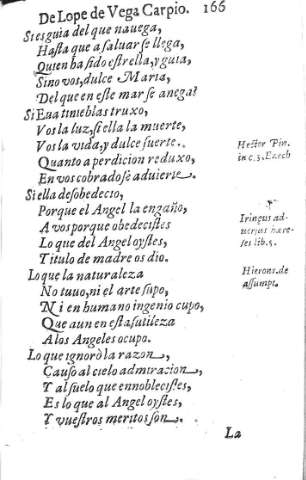 De Lope de Vega Carpio. 166
Si es guia del que nauega,
Hasta que a saluarse llega,
Quien ha sido estrella, y guia,
Sino vos, dulce Maria,
Del que en este mar se anega?
Si Eua tinieblas truxo,
Vos la luz, si ella la muerte,
Vos la vida, y dulce suerte.
Quanto a perdicion reduxo,
En vos cobrado se aduierte.
Si ella desobedecio,
Porque el Angel la engaño,
A vos porque obedecistes
Lo que del Angel oystes,
Titulo de madre os dio.
Lo que la naturaleza
No tuuo, ni el arte supo,
Ni en humano ingenio cupo,
Que aun en esta sutileza
A los Angeles ocupo.
Lo que ignorò la razon,
Causo al cielo admiracion,
Y al suelo que ennoblecistes,
Es lo que al Angel oystes,
Y vuestros meritos son.
La
Hector Pin.
in c. 3. Ezech
Irineus ad-
uersus haere-
ses lib. 5.
Hieron. de
assumpt.